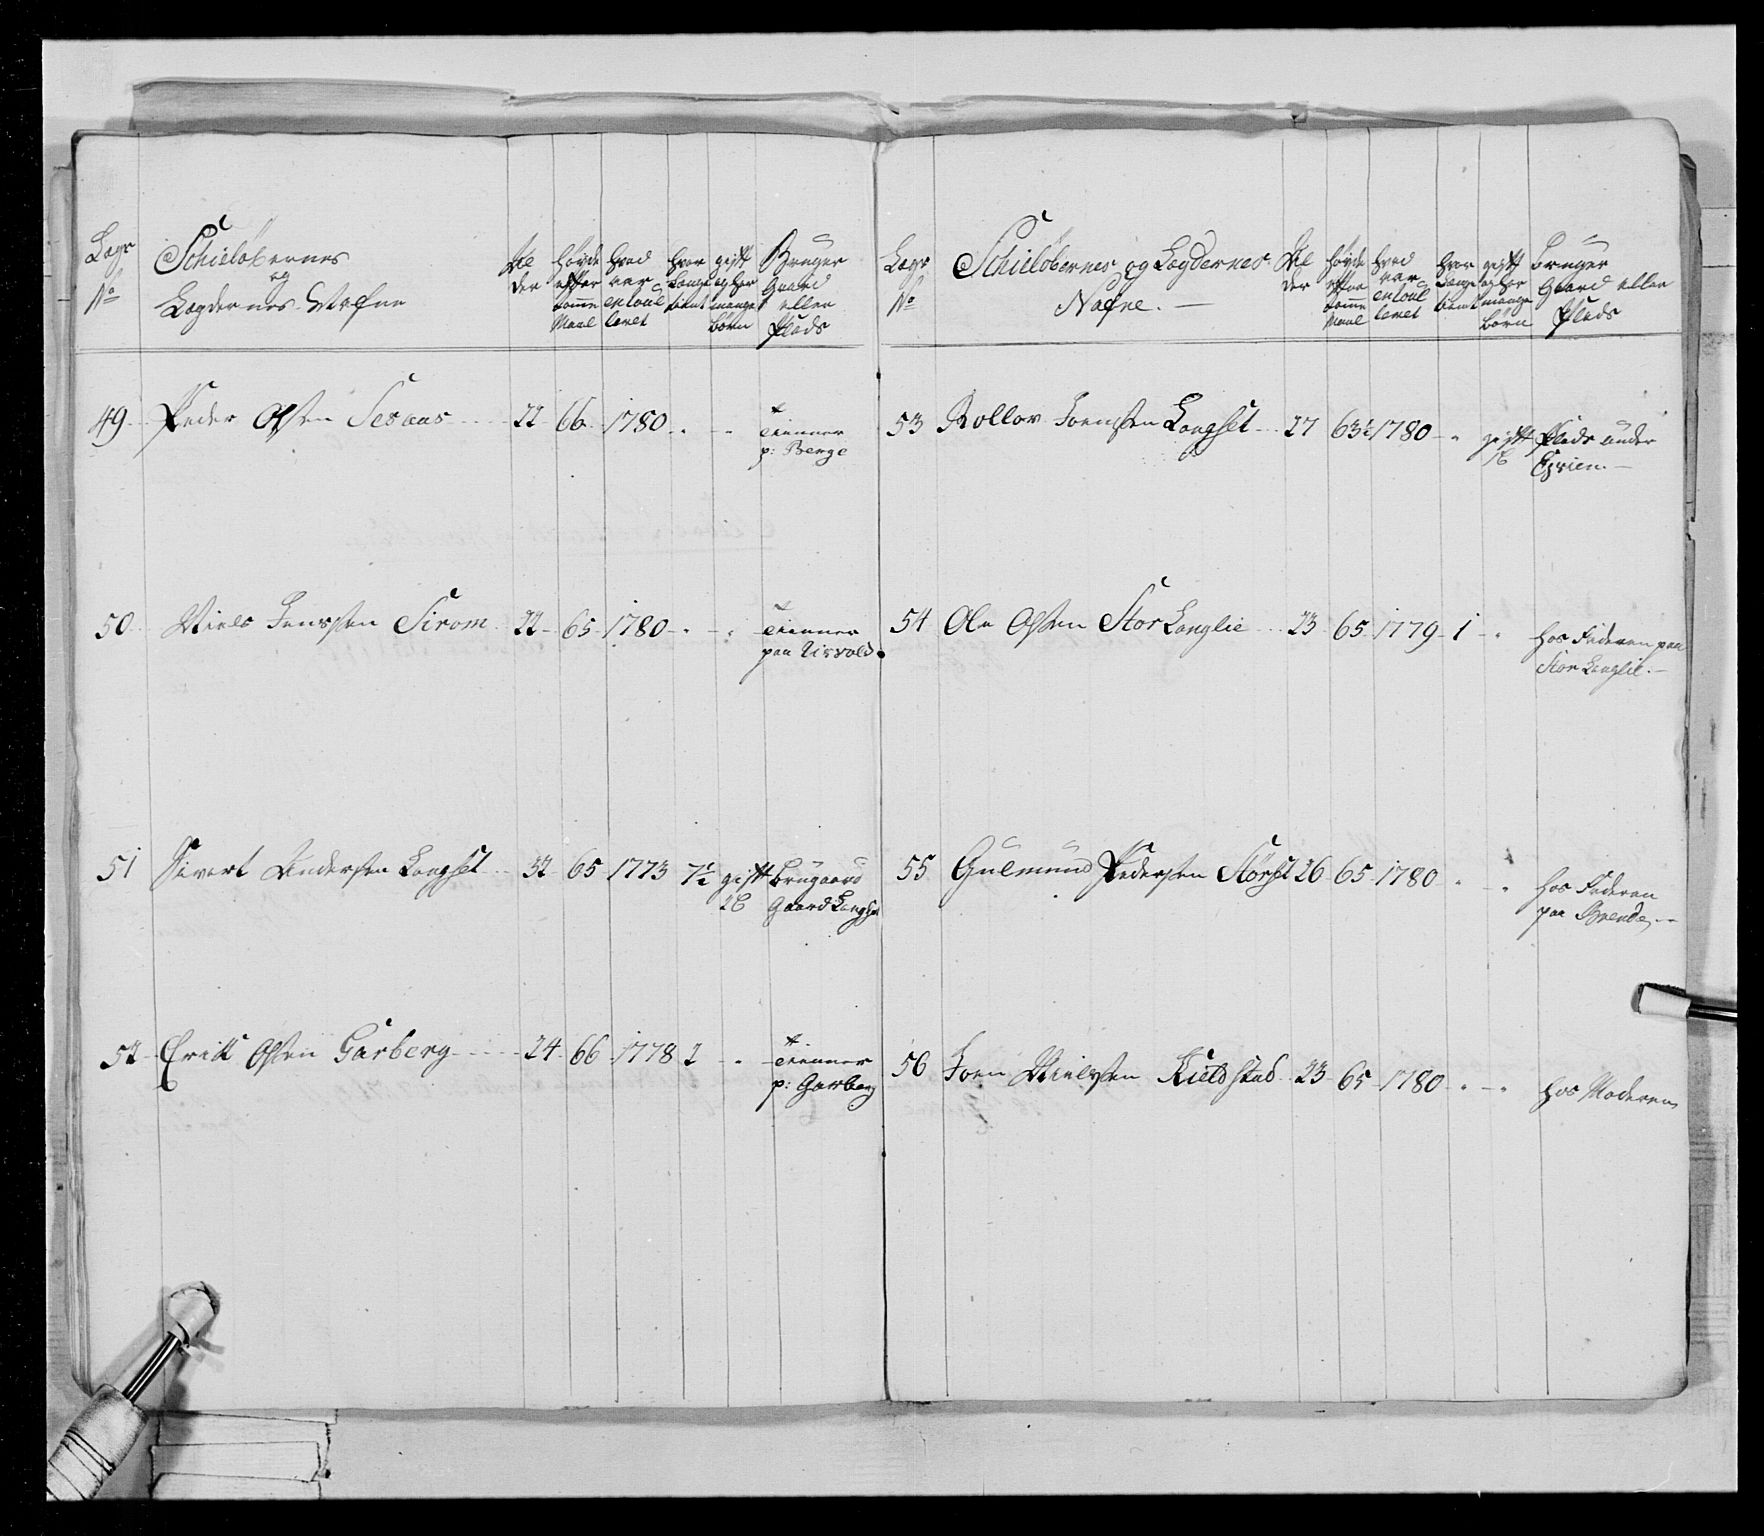 Lægs No
Schieløbernes og Lægdernes Nafne
Al der
Høyde efter Somme Maal
Hvad aar enroulleret
Hvor Længe tient
gift og hor mange børn
Bruger Gaard eller Plads
49 Peder Olsen Sesaas 22 66 1780 " " Tienner p: Berge
50 Niels Jensen Sirom 22 65 1780 " " Tienner paa Uisvold
51 Sivert Andersen Langset 32 65 1773 7½ gift 2 B Gaard Langset
52 Erik Olsen Garberg 24 66 1778 2 " Tienner p: Garberg
Lægs No
Schieløbernes og Lægdernes Nafne.
Al der
Høyde efter Somme Maal
Hvad aar enroulleret
Hvor Længe tient
gift og hor mange børn
Bruger Gaard eller Plads
53 Rollov Joensen Langset 27 63½ 1780 " gift 1 B Plads under
54 Ole Olsen Stor Langlie 23 65 1779 1 " hos Faderen paa Stor Langlie.
55 Gulmund Pedersen Størset 26 65 1780 " " hos Faderen paa Brende
56 Joen Nielsen Kieldstad 23 65 1780 " " hos Moderen